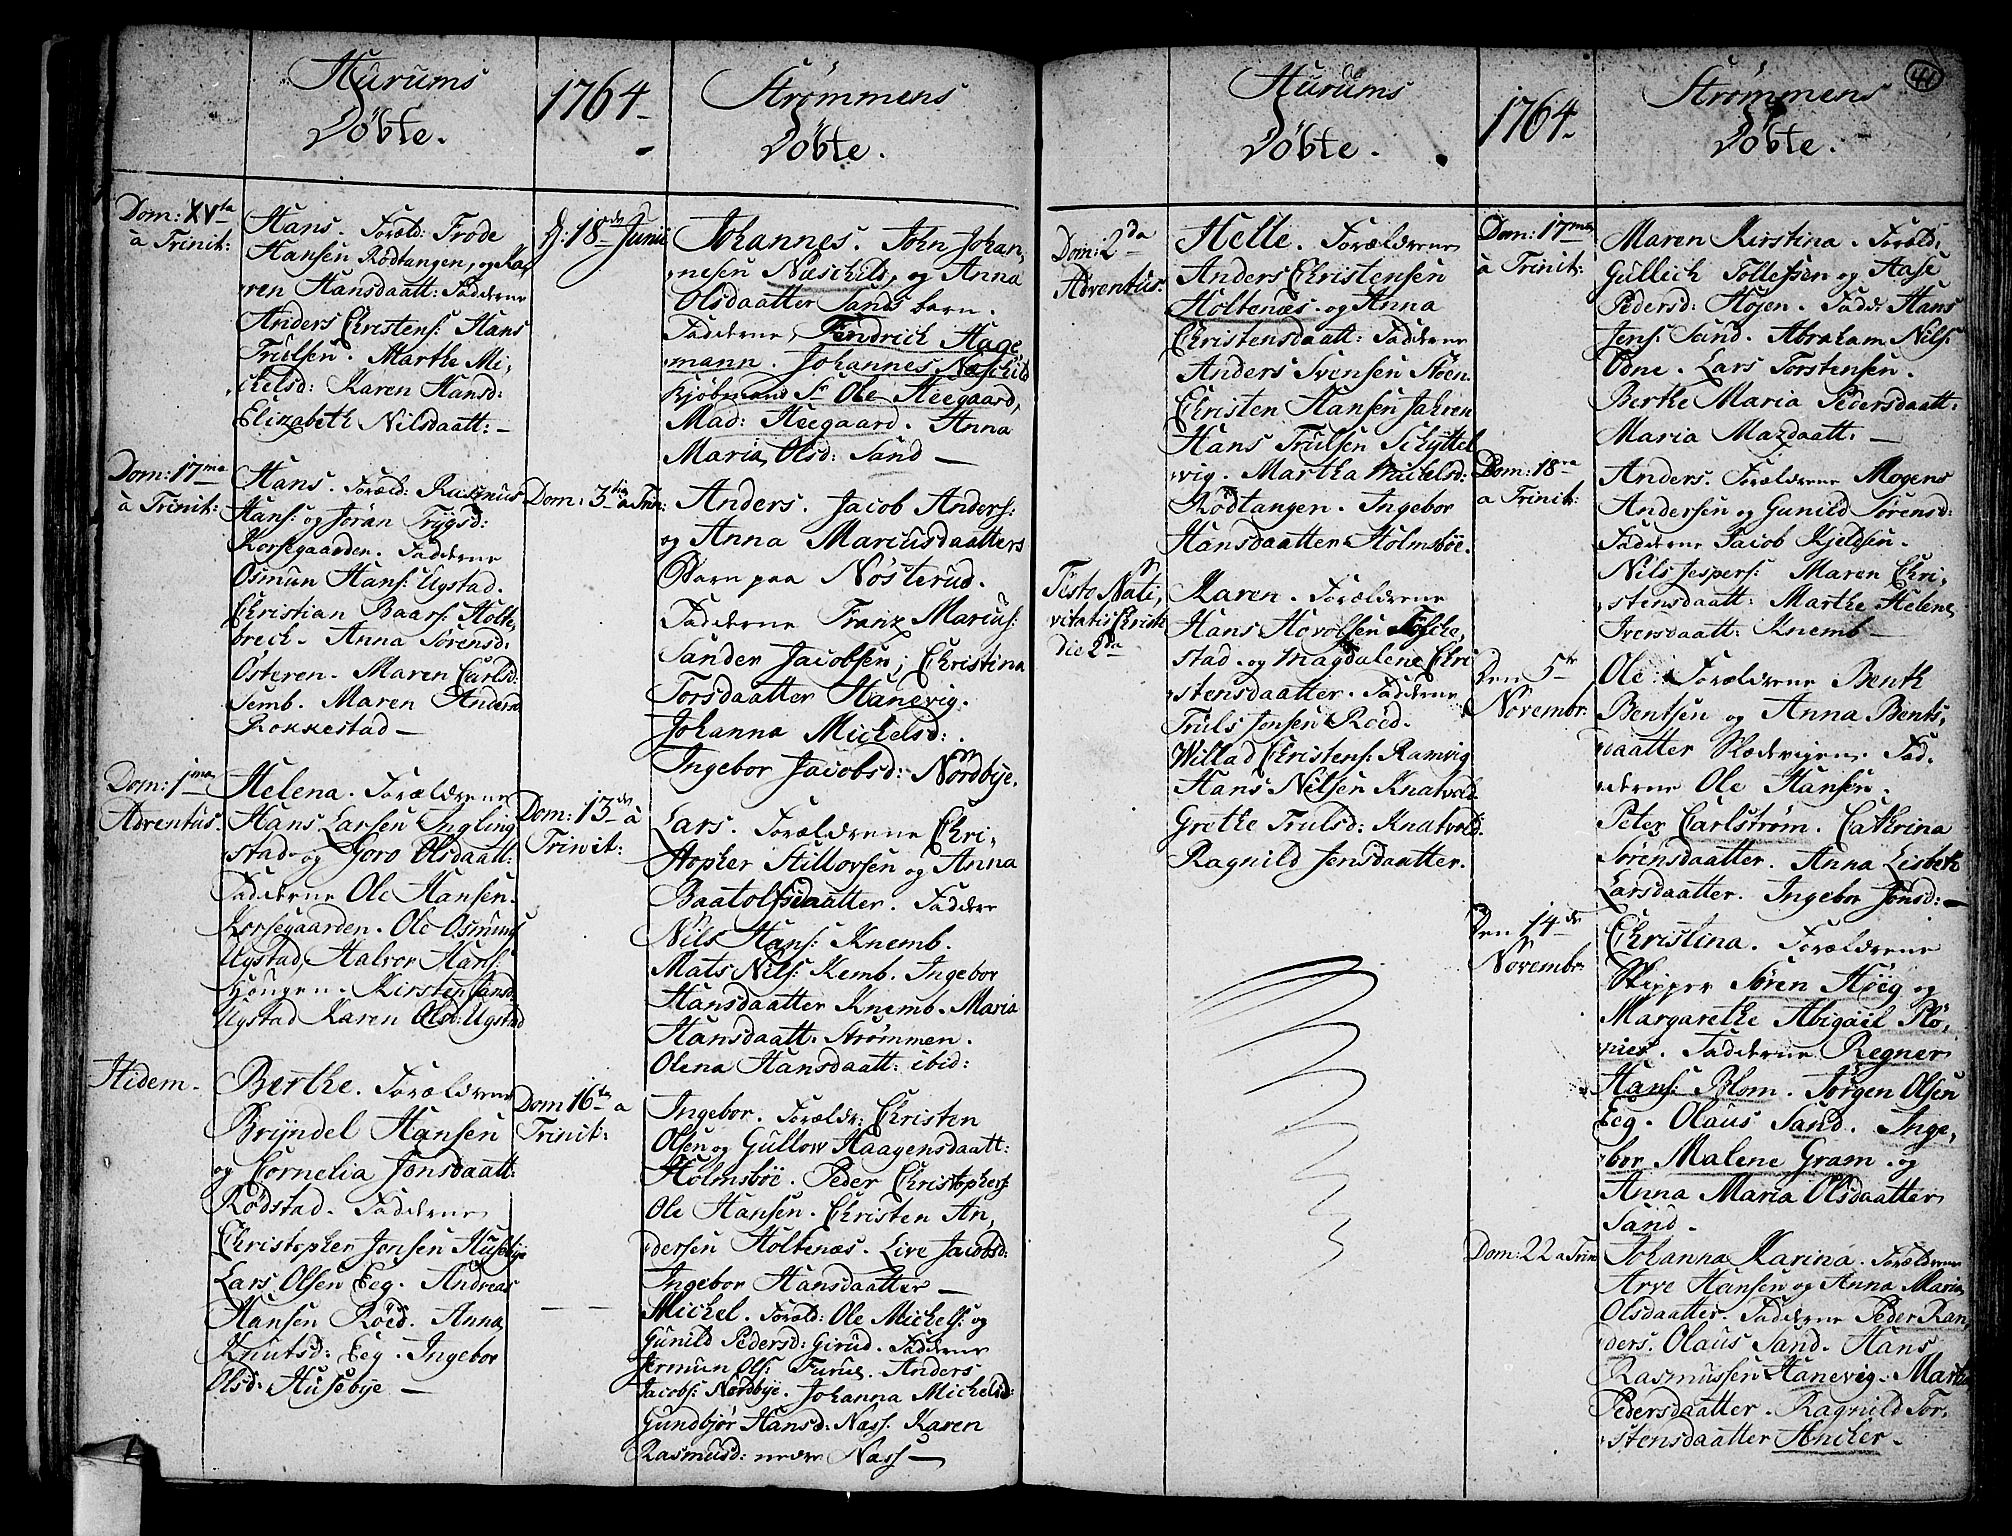 Hurums
Döbte.
1764
Strømmens
Döbte.
Dom: XVta
à Trinit:
Hans. Foræld: Frode
Hansen Rödtangen, og Ka,
ren Hansdaatt: Fadderne
Anders Christens: Hans
Trulsen. Marthe Mi,
chelsd: Karen Hansd:
Elizabeth Nilsdaatt: —
Dom: 17ma
à Trinit:
Hans. Foræld: Rasmus
Hans: og Jöran Trÿgsd:
Korsegaarden. Fadderne
Osmun Hans: Ugstad.
Christian Baars: Holte,
breck. Anna Sörensd:
Österen. Maren Carlsd:
Temb. Maren Andersd
Rokkestad —
Dom: 1ma
Adventus.
Helena. Forældrene
Hans Larsen Ingling
stad og Goro Olsdaatt:
Fadderne Ole Hansen
Korsegaarden. Ole Osmuns
Ugstad, Halvor Hans:
Hougen. Kirsten Hansd:
Ugstad Karen Olsd: Ugstad
Hidem.
Berthe. Forældrene
Brÿndel Hansen
og Cornelia Jonsdaatt:
Rödstad. Fadderne
Christopher Jonsen Husebÿe
Lars Olsen Eeg. Andreas
Hansen Röed. Anna
Knutsd: Eeg. Ingebor
Olsd: Husebÿe —
D: 18de Junii
Johannes. John Johan,
nesen Næschels, og Anna
Olsdaatter Sands barn.
Fadderne Fendrich Hage,
mann. Johannes Næschild
Kjöbmand Sr Ole Heegaard,
Mad: Heegaard. Anna
Maria Olsd: Sand —
Dom: 3tia a Trin:
Anders. Jacob Anders:
og Anna Marcusdaatters
Barn paa Nösterud.
Fadderne Franz Marius:
Sander Jacobsen; Christina
Torsdaatter Hanevig.
Johanna Michelsd:.
Ingebor Jacobsd: Nordbÿe.
Dom: 13de à
Trinit:
Lars. Forældrene Chri,
stopher Stillovsen og Anna
Baatolfsdaatter. Fadder
Nils Hans: Knemb.
Mats Nils: Kemb. Ingebor
Hansdaatter Knemb. Maria
Hansdaatt: Strømmen.
Olena Hansdaatt: ibid:
Dom 16ta a
Trinit:
Ingebor. Forældr: Christen
Olsen og Gullow Haagensdaatt:
Holmsböe. Peder Christophers
Ole Hansen. Christen An,
dersen Holtenæs. Live Jacobsd:
Ingebor Hansdaatter —
— —
Michel. Foræld: Ole Michels: og
Gunild Pedersd: Girud. Fadderne
Jermun Ols: Furue. Anders
Jacobs: Nordbÿe. Johanna Michelsd:
Gundbjør Hansd: Næss. Karen
Rasmusd: nedre Næss —
41
Hurums
Döbte.
1764
Strømmens
Döbte.
Dom: 2da
Adventus.
Helle. Forældrene
Anders Christensen
Holtenæs. og Anna
Christensdaatt: Fadderne
Anders Svensen Stöen
Christen Hansen Jahren
Hans Trulsen Schÿttel
vig. Martha Michelsd:
Rödtangen. Ingebor
Hansdaatter Holmsböe.
Festo Nati,
vitatis Christi
die 2da
Karen. Forældrene
Hans Hovolsen Tofte,
stad og Magdalene Chri
stensdaatter. Fadderne
Truls Jensen Röed.
Willad Christens: Ramvig
Hans Nilsen Knatvold
Grethe Trulsd: Knatvold.
Ragnild Jensdaatter.
Dom: 17ma
à Trinit:
Maren Kirstina. Foræld:
Gullich Tollefsen og Aase
Pedersd: Höjen. Fadd: Hans
Jens: Sand. Abraham Nils:
Odne. Lars Torstensen.
Berthe Maria Pedersdaatt:
Maria Mazdaatt: —
Dom: 18va
a Trinit:
Anders. Forældrene Mogens
Andersen og Gunild Sörensd:
Fadderne Jacob Kjeldsen.
Nils Jespers: Maren Chri,
stensdaatt: Marthe Helene
Iversdaatt: Knemb —
Den 5te
Novembr.
Ole. Forældrene Benth
Bentsen og Anna Bents,
daatter Klædevigen. Fad,
derne Ole Hansen.
Peter Carlstrøm. Cathrina
Sörensdaatter. Anna Lisbeth
Larsdaatter. Ingebor Jonsd: —
Den 14de
Novembr.
Christina. Forældrene
Skipper Sören Höeg og
Margarethe Abigäil Plö,
nies. Fadderne Regner
Hans: Blom. Jörgen Olsen
Eeg. Olaus Sand. Inge,
bor Malene Gram. og
Anna Maria Olsdaatter
Sand.
Dom: 22 a Trin
Johanna Karina. Forældrene
Arve Hansen og Anna Maria
Olsdaatter. Fadderne Peder Ran,
ders. Olaus Sand. Hans
Rasmussen Hanevig. Martha
Pedersdaatter. Ragnild Tor,
stensdaatter Ancher.